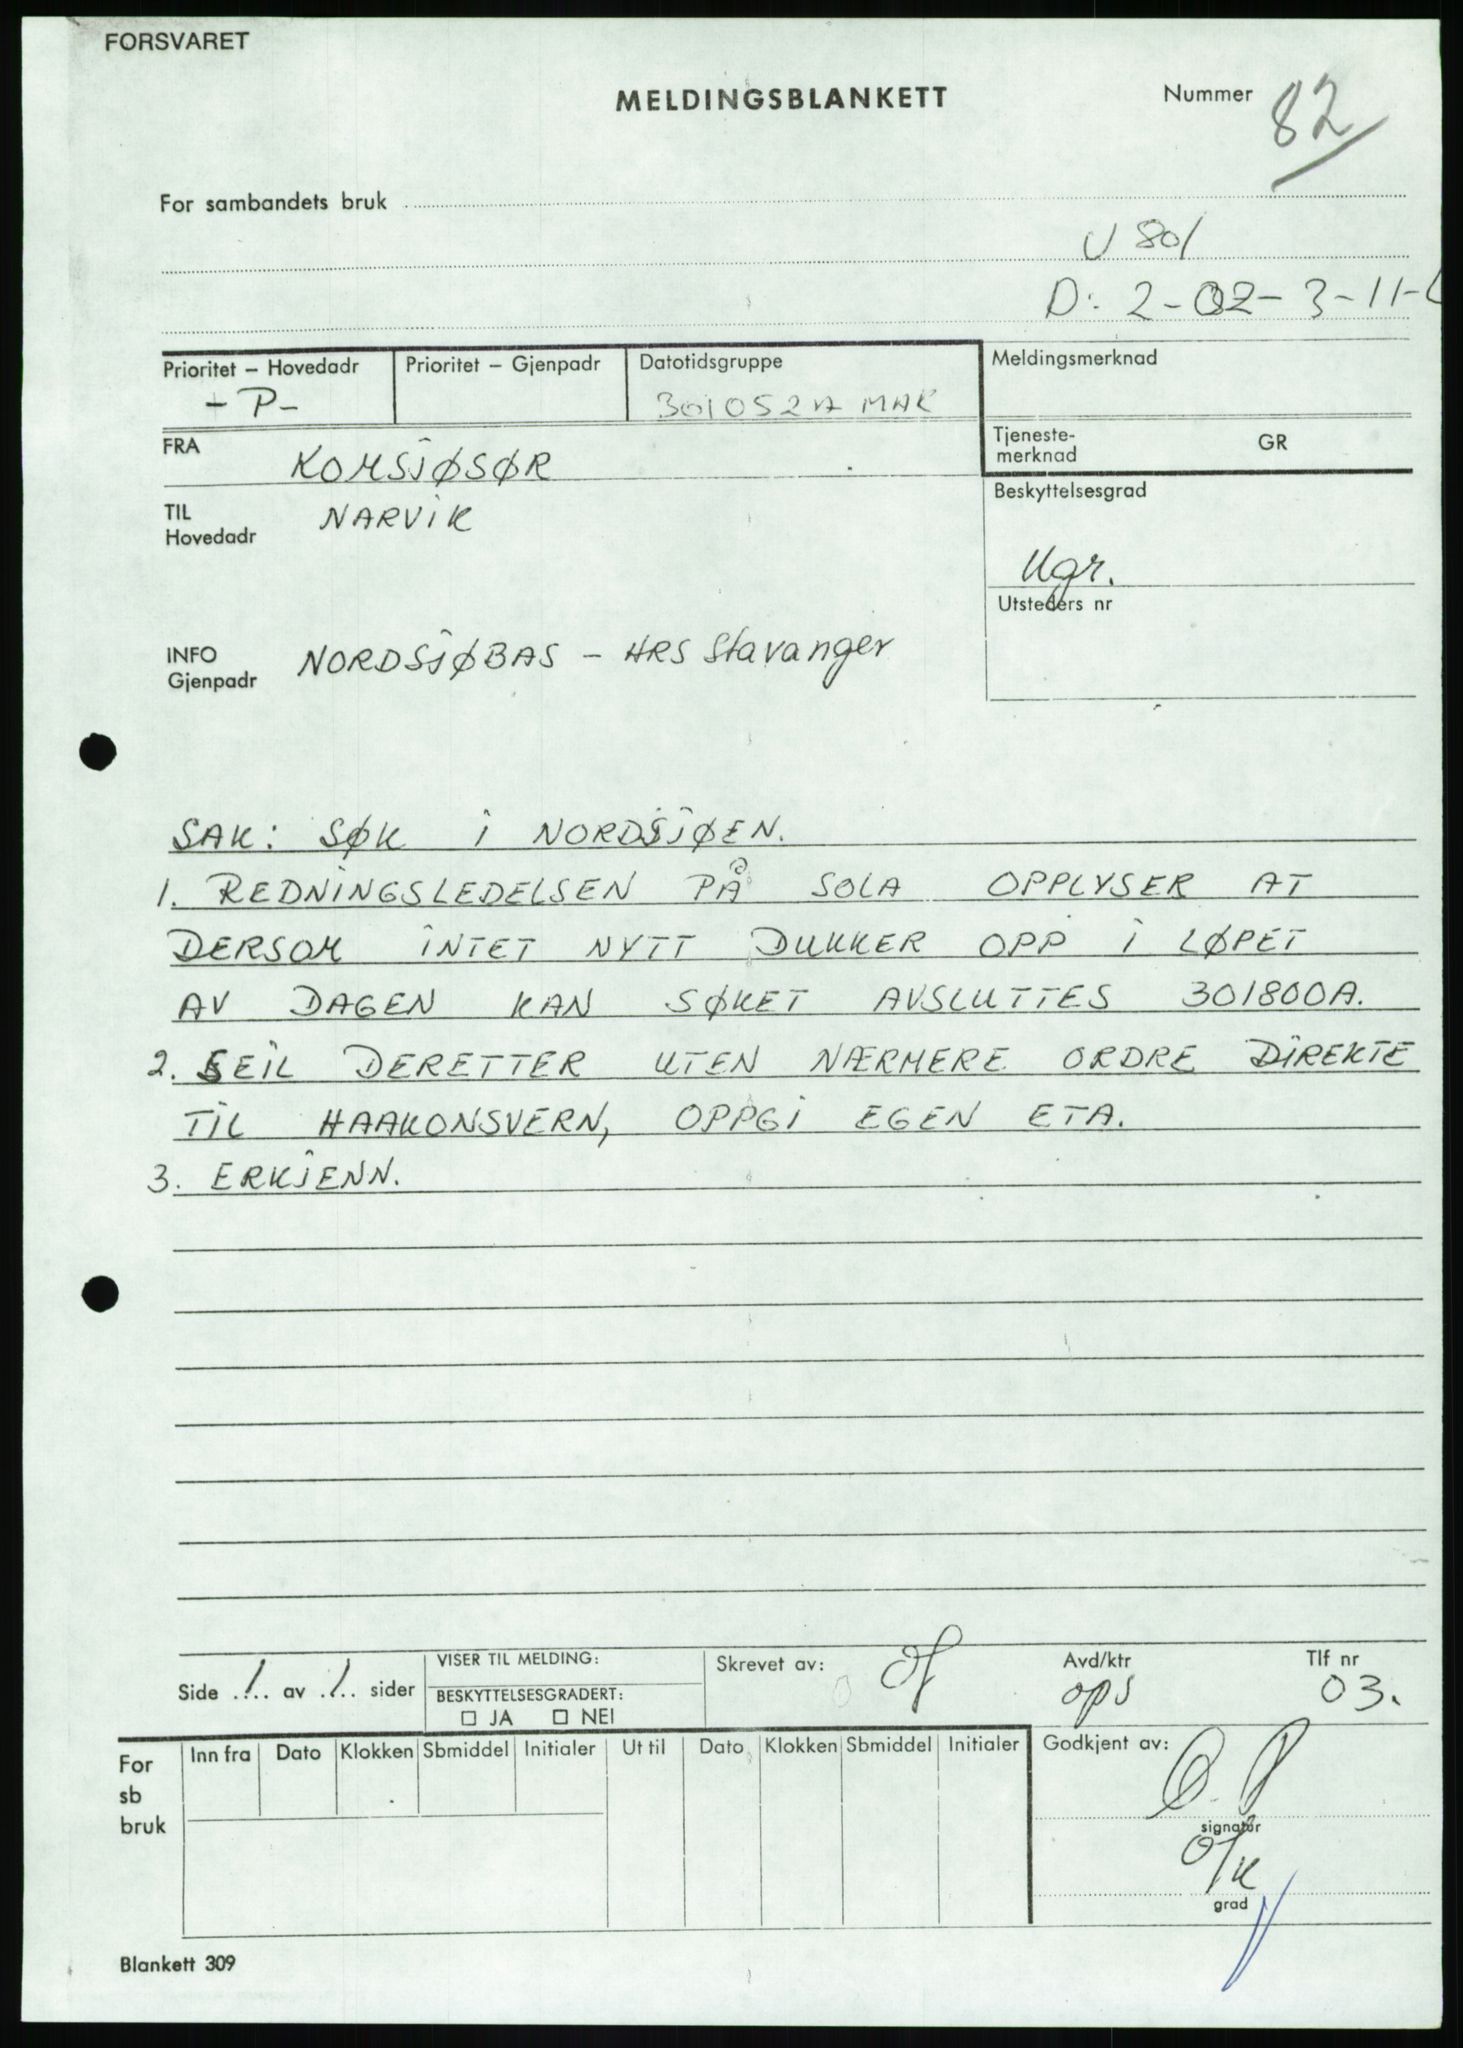 FORSVARET
MELDINGSBLANKETT
Nummer 82
For sambandets bruk
U 801
D: 2-02-3-11-
Prioritet – Hovedadr
Prioritet – Gjenpadr
Datotidsgruppe
Meldingsmerknad
- P -
301052A MAR
FRA KOMSJØSØR
Tjeneste-
merknad
GR
TIL
Hovedadr
NARVIK
Beskyttelsesgrad
Ugr.
Utsteders nr
INFO
Gjenpadr
NORDSJØBAS – HRS Stavanger
SAK: SØK I NORDSJØEN.
1. REDNINGSLEDELSEN PÅ SOLA OPPLYSER AT
DERSOM INTET NYTT DUKKER OPP I LØPET
AV DAGEN KAN SØKET AVSLUTTES 301800A.
2. SEIL DERETTER UTEN NÆRMERE ORDRE DIREKTE
TIL HAAKONSVERN, OPPGI EGEN ETA.
3. ERKJENN.
Side 1 av 1 sider
VISER TIL MELDING:
BESKYTTELSESGRADERT:
☐ JA ☐ NEI
Skrevet av:
Avd/ktr
ops
Tlf nr
03.
For
sb
bruk
Inn fra Dato Klokken Sbmiddel Initialer Ut til Dato Klokken Sbmiddel Initialer
Godkjent av:
signatur
o/k
grad
Blankett 309